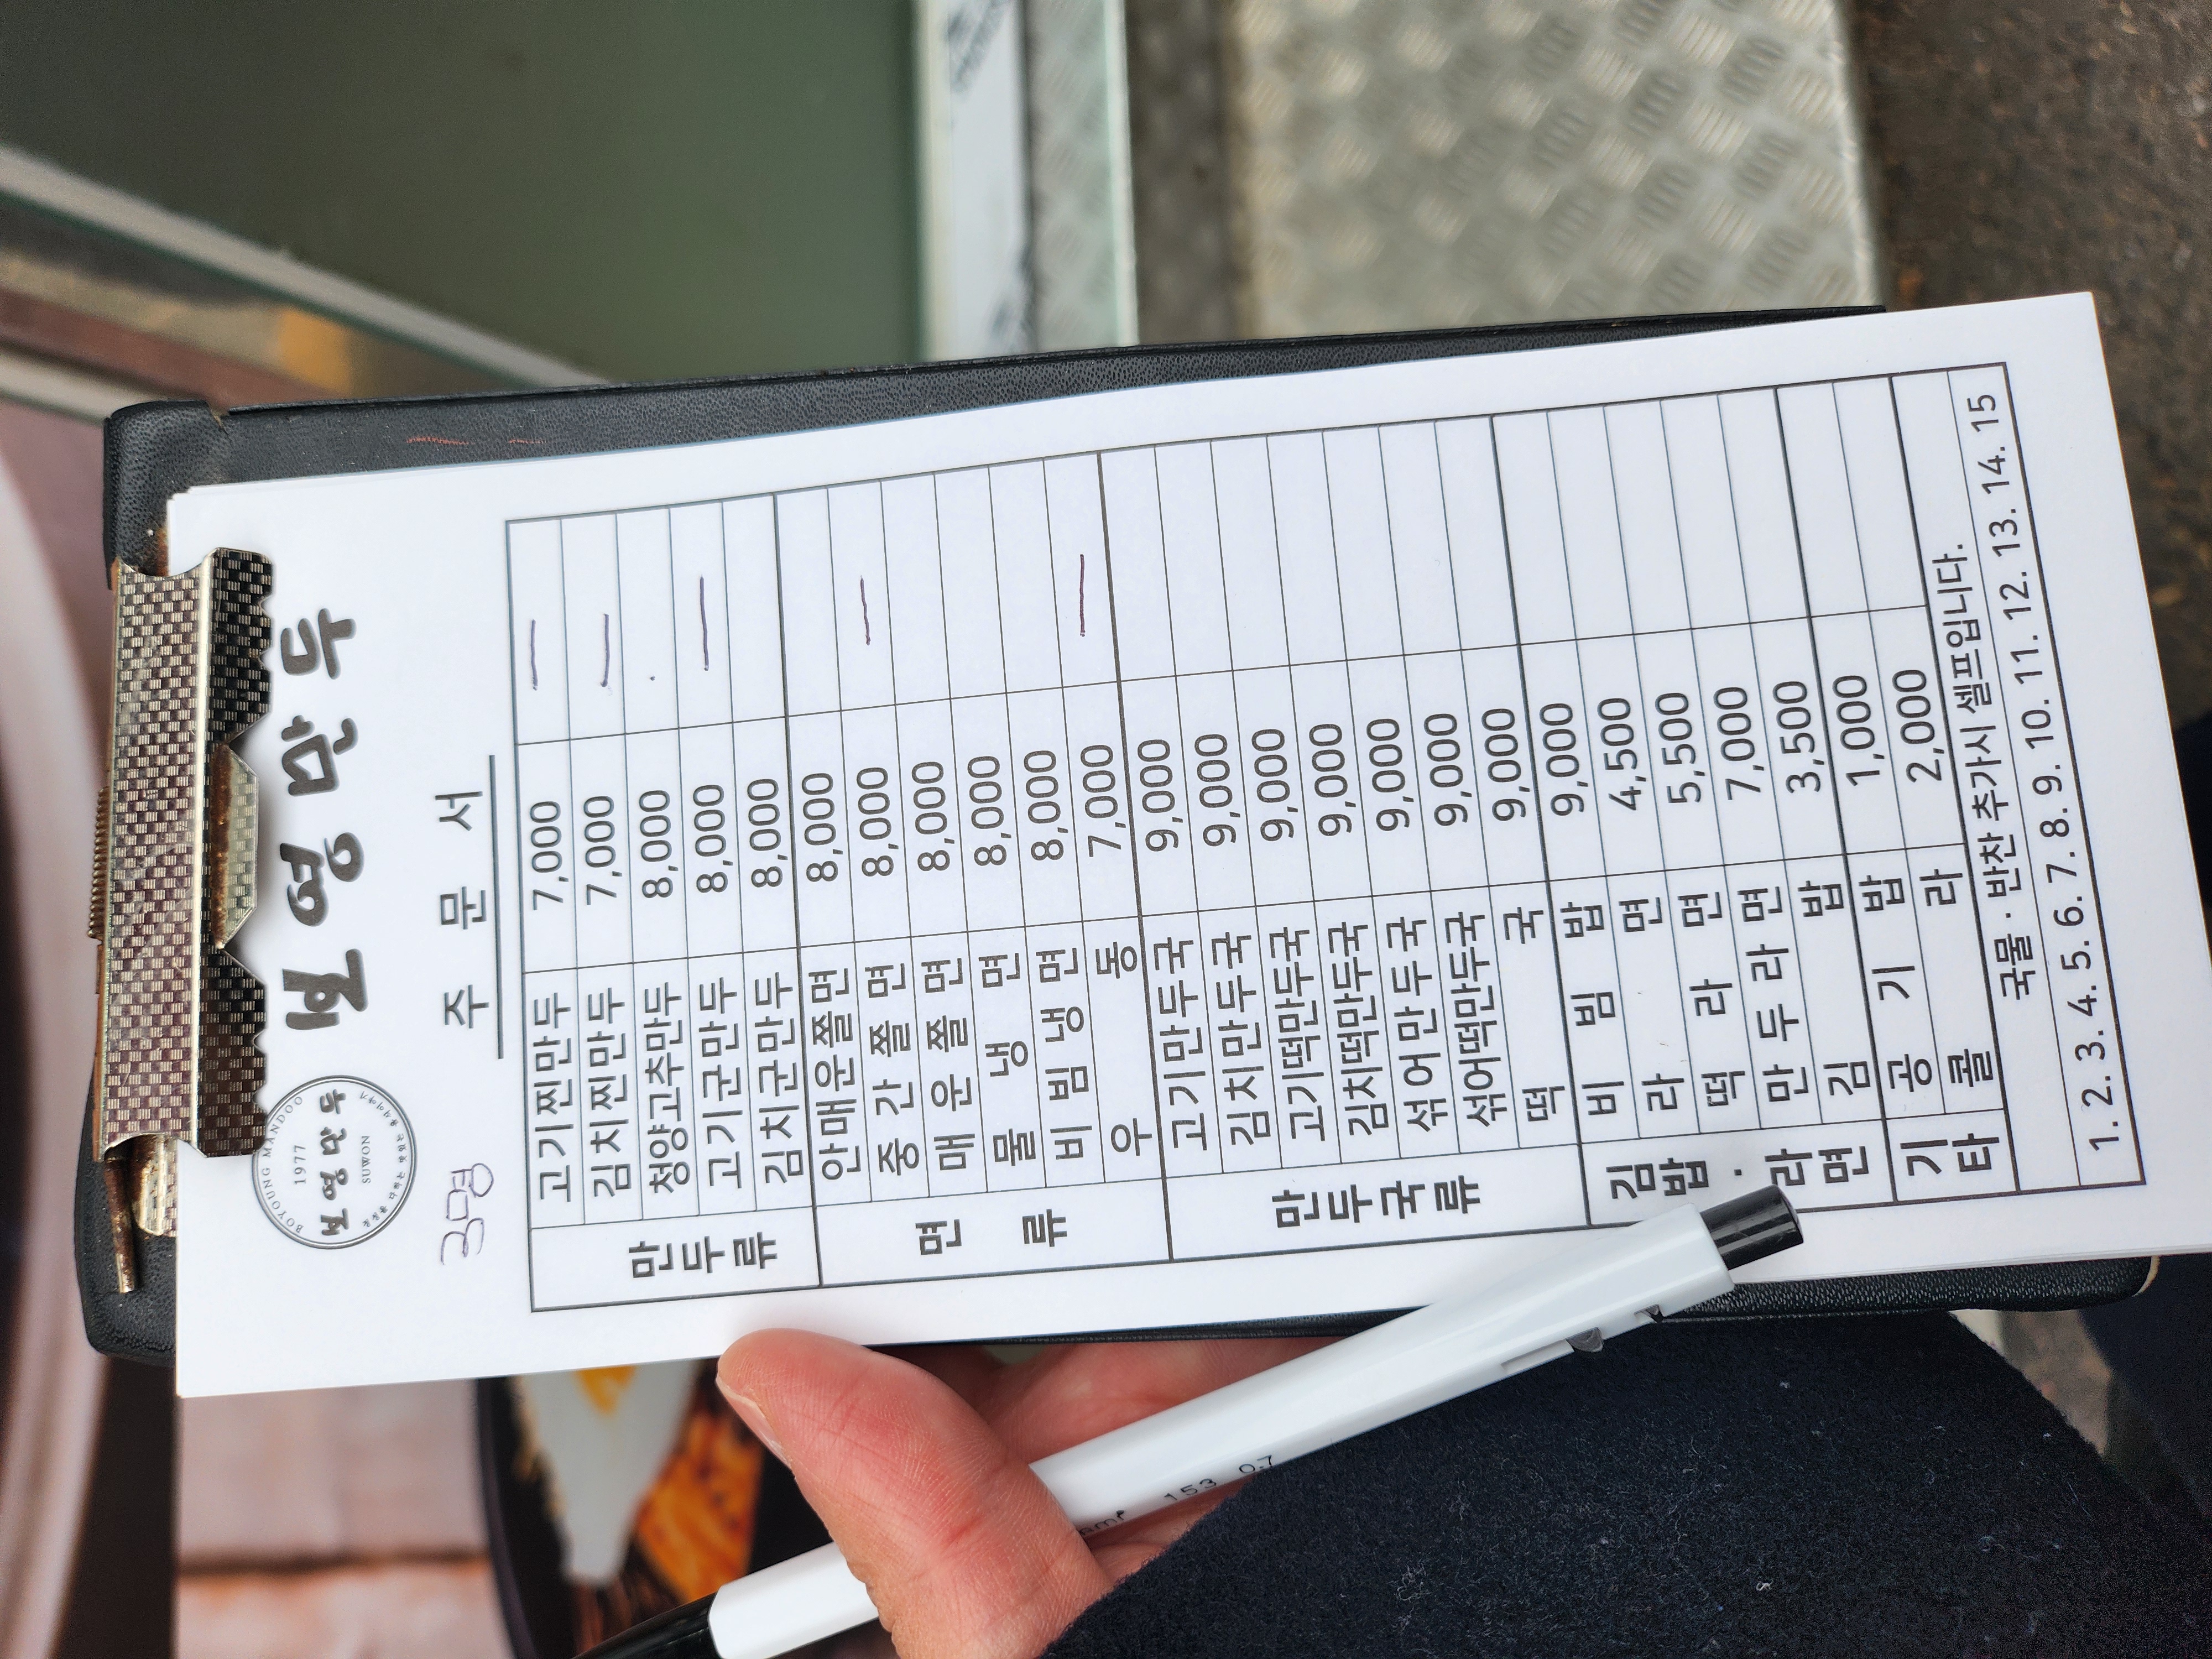 BOYOUNG MANDOO
1977
보영만두
SUWON
보영만두
주 문 서
3명
만두류
고기찐만두 7,000 —
김치찐만두 7,000 —
청양고추만두 8,000
고기군만두 8,000 —
김치군만두 8,000
면류
안매운쫄면 8,000
중간쫄면 8,000 —
매운쫄면 8,000
물냉면 8,000
비빔냉면 8,000
우동 7,000 —
만두국류
고기만두국 9,000
김치만두국 9,000
고기떡만두국 9,000
김치떡만두국 9,000
섞어만두국 9,000
섞어떡만두국 9,000
떡국 9,000
김밥·라면
비빔밥 9,000
라면 4,500
떡라면 5,500
만두라면 7,000
김밥 3,500
기타
공기밥 1,000
콜라 2,000
국물·반찬 추가시 셀프입니다.
1. 2. 3. 4. 5. 6. 7. 8. 9. 10. 11. 12. 13. 14. 15
153 0.7